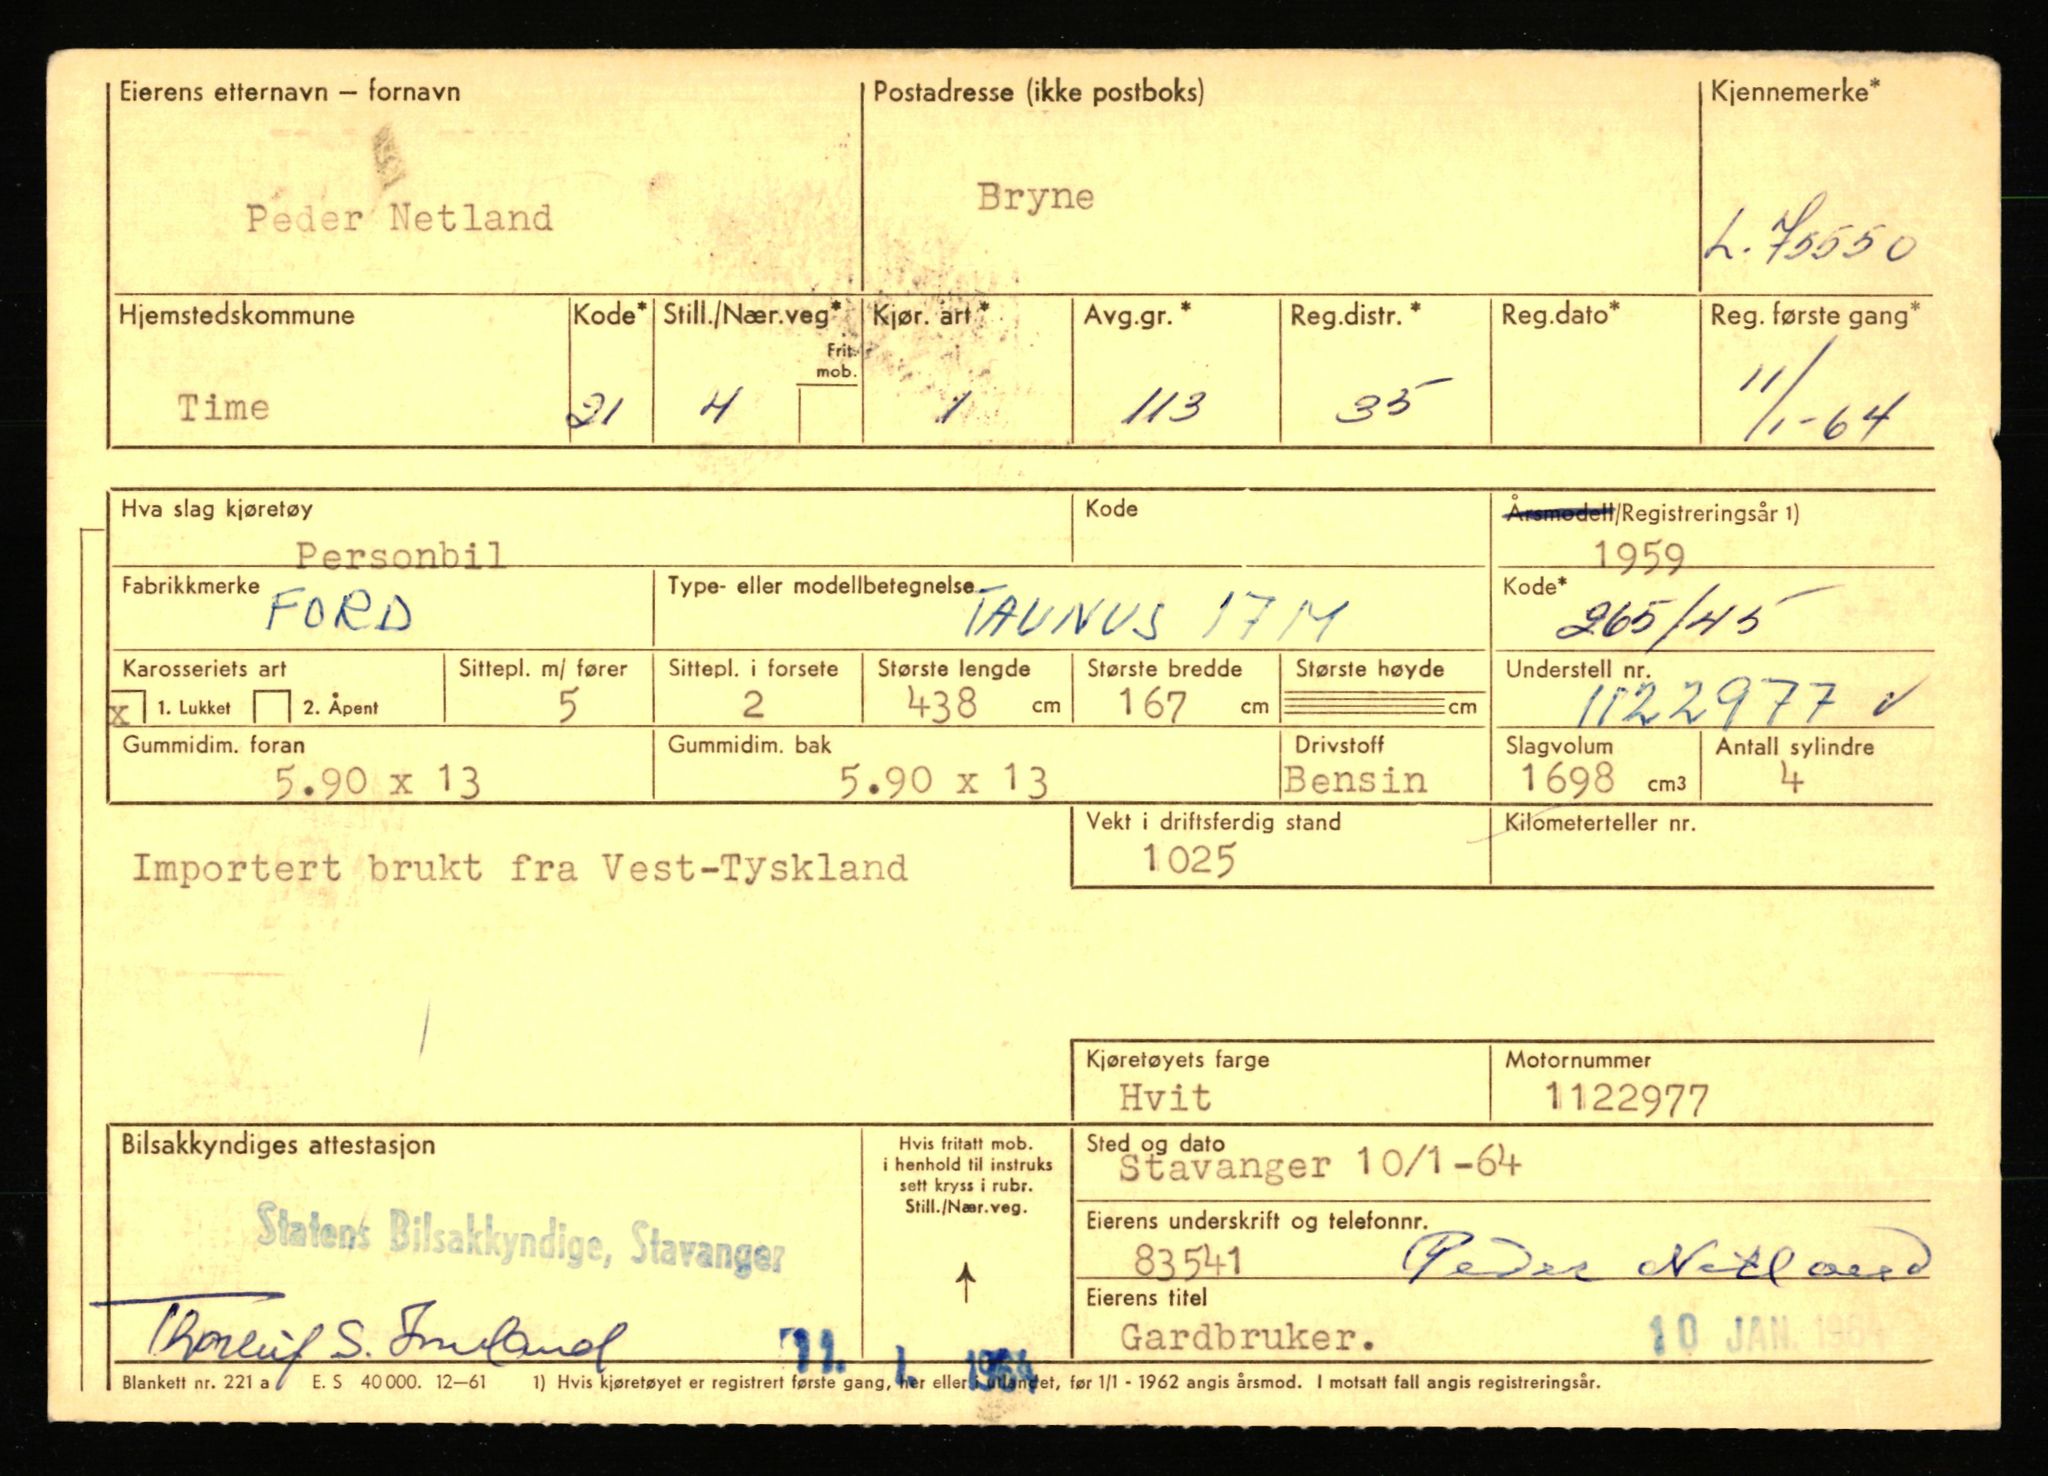 Eierens etternavn — fornavn
Postadresse (ikke postboks)
Kjennemerke*
Peder Netland
Bryne
L. 75550
Hjemstedskommune
Kode*
Still./Nær.veg*
Frit. mob.
Kjør. art*
Avg.gr.*
Reg.distr.*
Reg.dato*
Reg. første gang*
Time
21
4
1
113
35
11/1-64
Hva slag kjøretøy
Kode
Årsmodell/Registreringsår 1)
Personbil
1959
Fabrikkmerke
Type- eller modellbetegnelse
Kode*
FORD
TAUNUS 17M
265/45
Karosseriets art
Sittepl. m/ fører
Sittepl. i forsete
Største lengde
Største bredde
Største høyde
Understell nr.
x 1. Lukket
2. Åpent
5
2
438 cm
167 cm
cm
1122977 ✓
Gummidim. foran
Gummidim. bak
Drivstoff
Slagvolum
Antall sylindre
5.90 x 13
5.90 x 13
Bensin
1698 cm3
4
Vekt i driftsferdig stand
Kilometerteller nr.
1025
Importert brukt fra Vest-Tyskland
Kjøretøyets farge
Motornummer
Hvit
1122977
Bilsakkyndiges attestasjon
Hvis fritatt mob.
i henhold til instruks
sett kryss i rubr.
Still./Nær.veg.
Sted og dato
Stavanger 10/1-64
Statens Bilsakkyndige, Stavanger
Eierens underskrift og telefonnr.
83541
Peder Netland
Eierens titel
Gardbruker.
10 JAN. 1964
S.
11. 1. 1964
Blankett nr. 221 a
E. S 40 000. 12—61
1) Hvis kjøretøyet er registrert første gang, her eller i utlandet, før 1/1 - 1962 angis årsmod. I motsatt fall angis registreringsår.